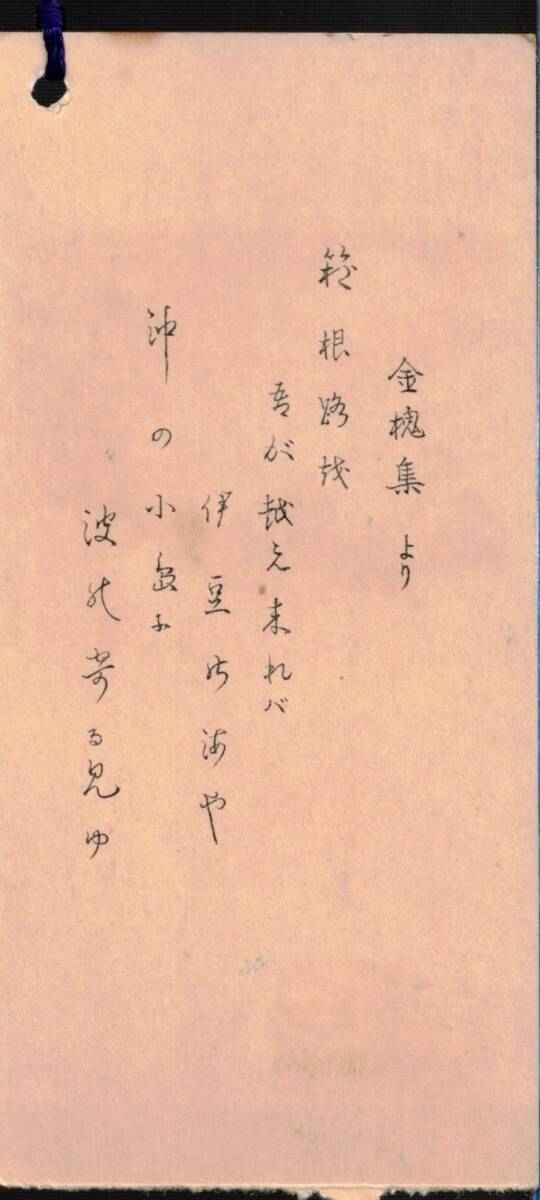 金槐集より
箱根路越
吾が越え来れバ
伊豆能海や
沖の小島尓
波能寄る見ゆ